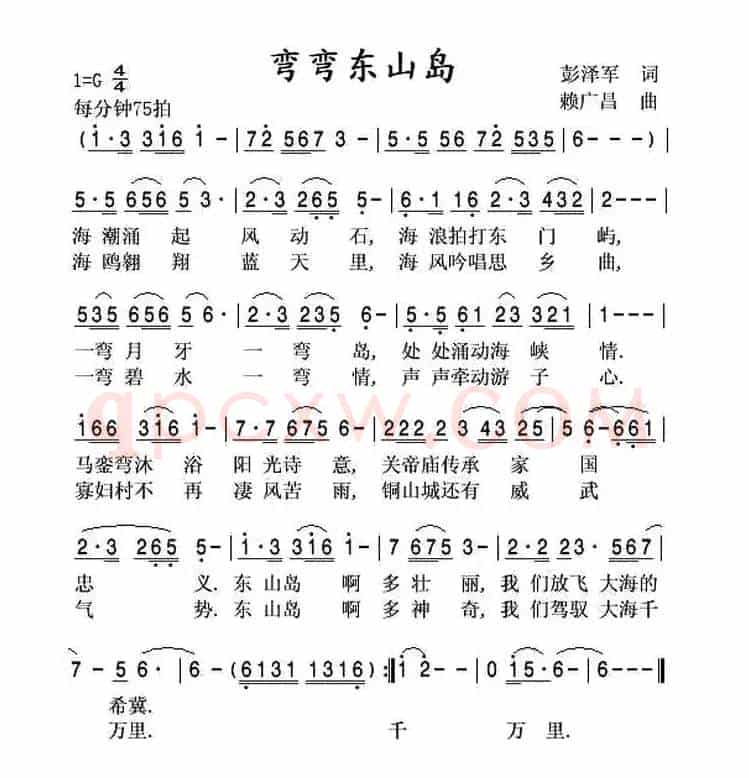 弯弯东山岛
1=G 4/4
彭泽军 词
每分钟75拍
赖广昌 曲
(1·3 316 1- | 72 567 3- | 5·5 56 72 535 | 6--) |
5·5 656 5 3· | 2·3 265 5- | 6·1 16 2·3 432 | 2--- |
海 潮涌 起 风 动 石, 海 浪拍打东 门 屿,
海 鸥翱 翔 蓝 天 里, 海 风吟唱思 乡 曲,
535 656 5 6· | 2·3 235 6- | 5·5 61 23 321 | 1--- |
一弯 月 牙 一 弯 岛, 处 处涌动海 峡 情.
一弯 碧 水 一 弯 情, 声 声牵动游 子 心.
qpcxw.com
166 316 1- | 7·7 675 6- | 222 2 3 43 25 | 5 6-661 |
马銮弯沐 浴 阳 光诗 意, 关帝庙传承 家 国
寡妇村不 再 凄 风苦 雨, 铜山城还有 威 武
2·3 265 5- | 1·3 316 1- | 7 675 3- | 2·2 23· 567 |
忠 义. 东 山岛 啊 多 壮 丽, 我 们放飞 大海的
气 势. 东 山岛 啊 多 神 奇, 我 们驾驭 大海千
7- 5 6· | 6 -(6131 1316) :‖ 1 2-- | 0 15·6- | 6--- |
希冀.
万里. 千 万 里.